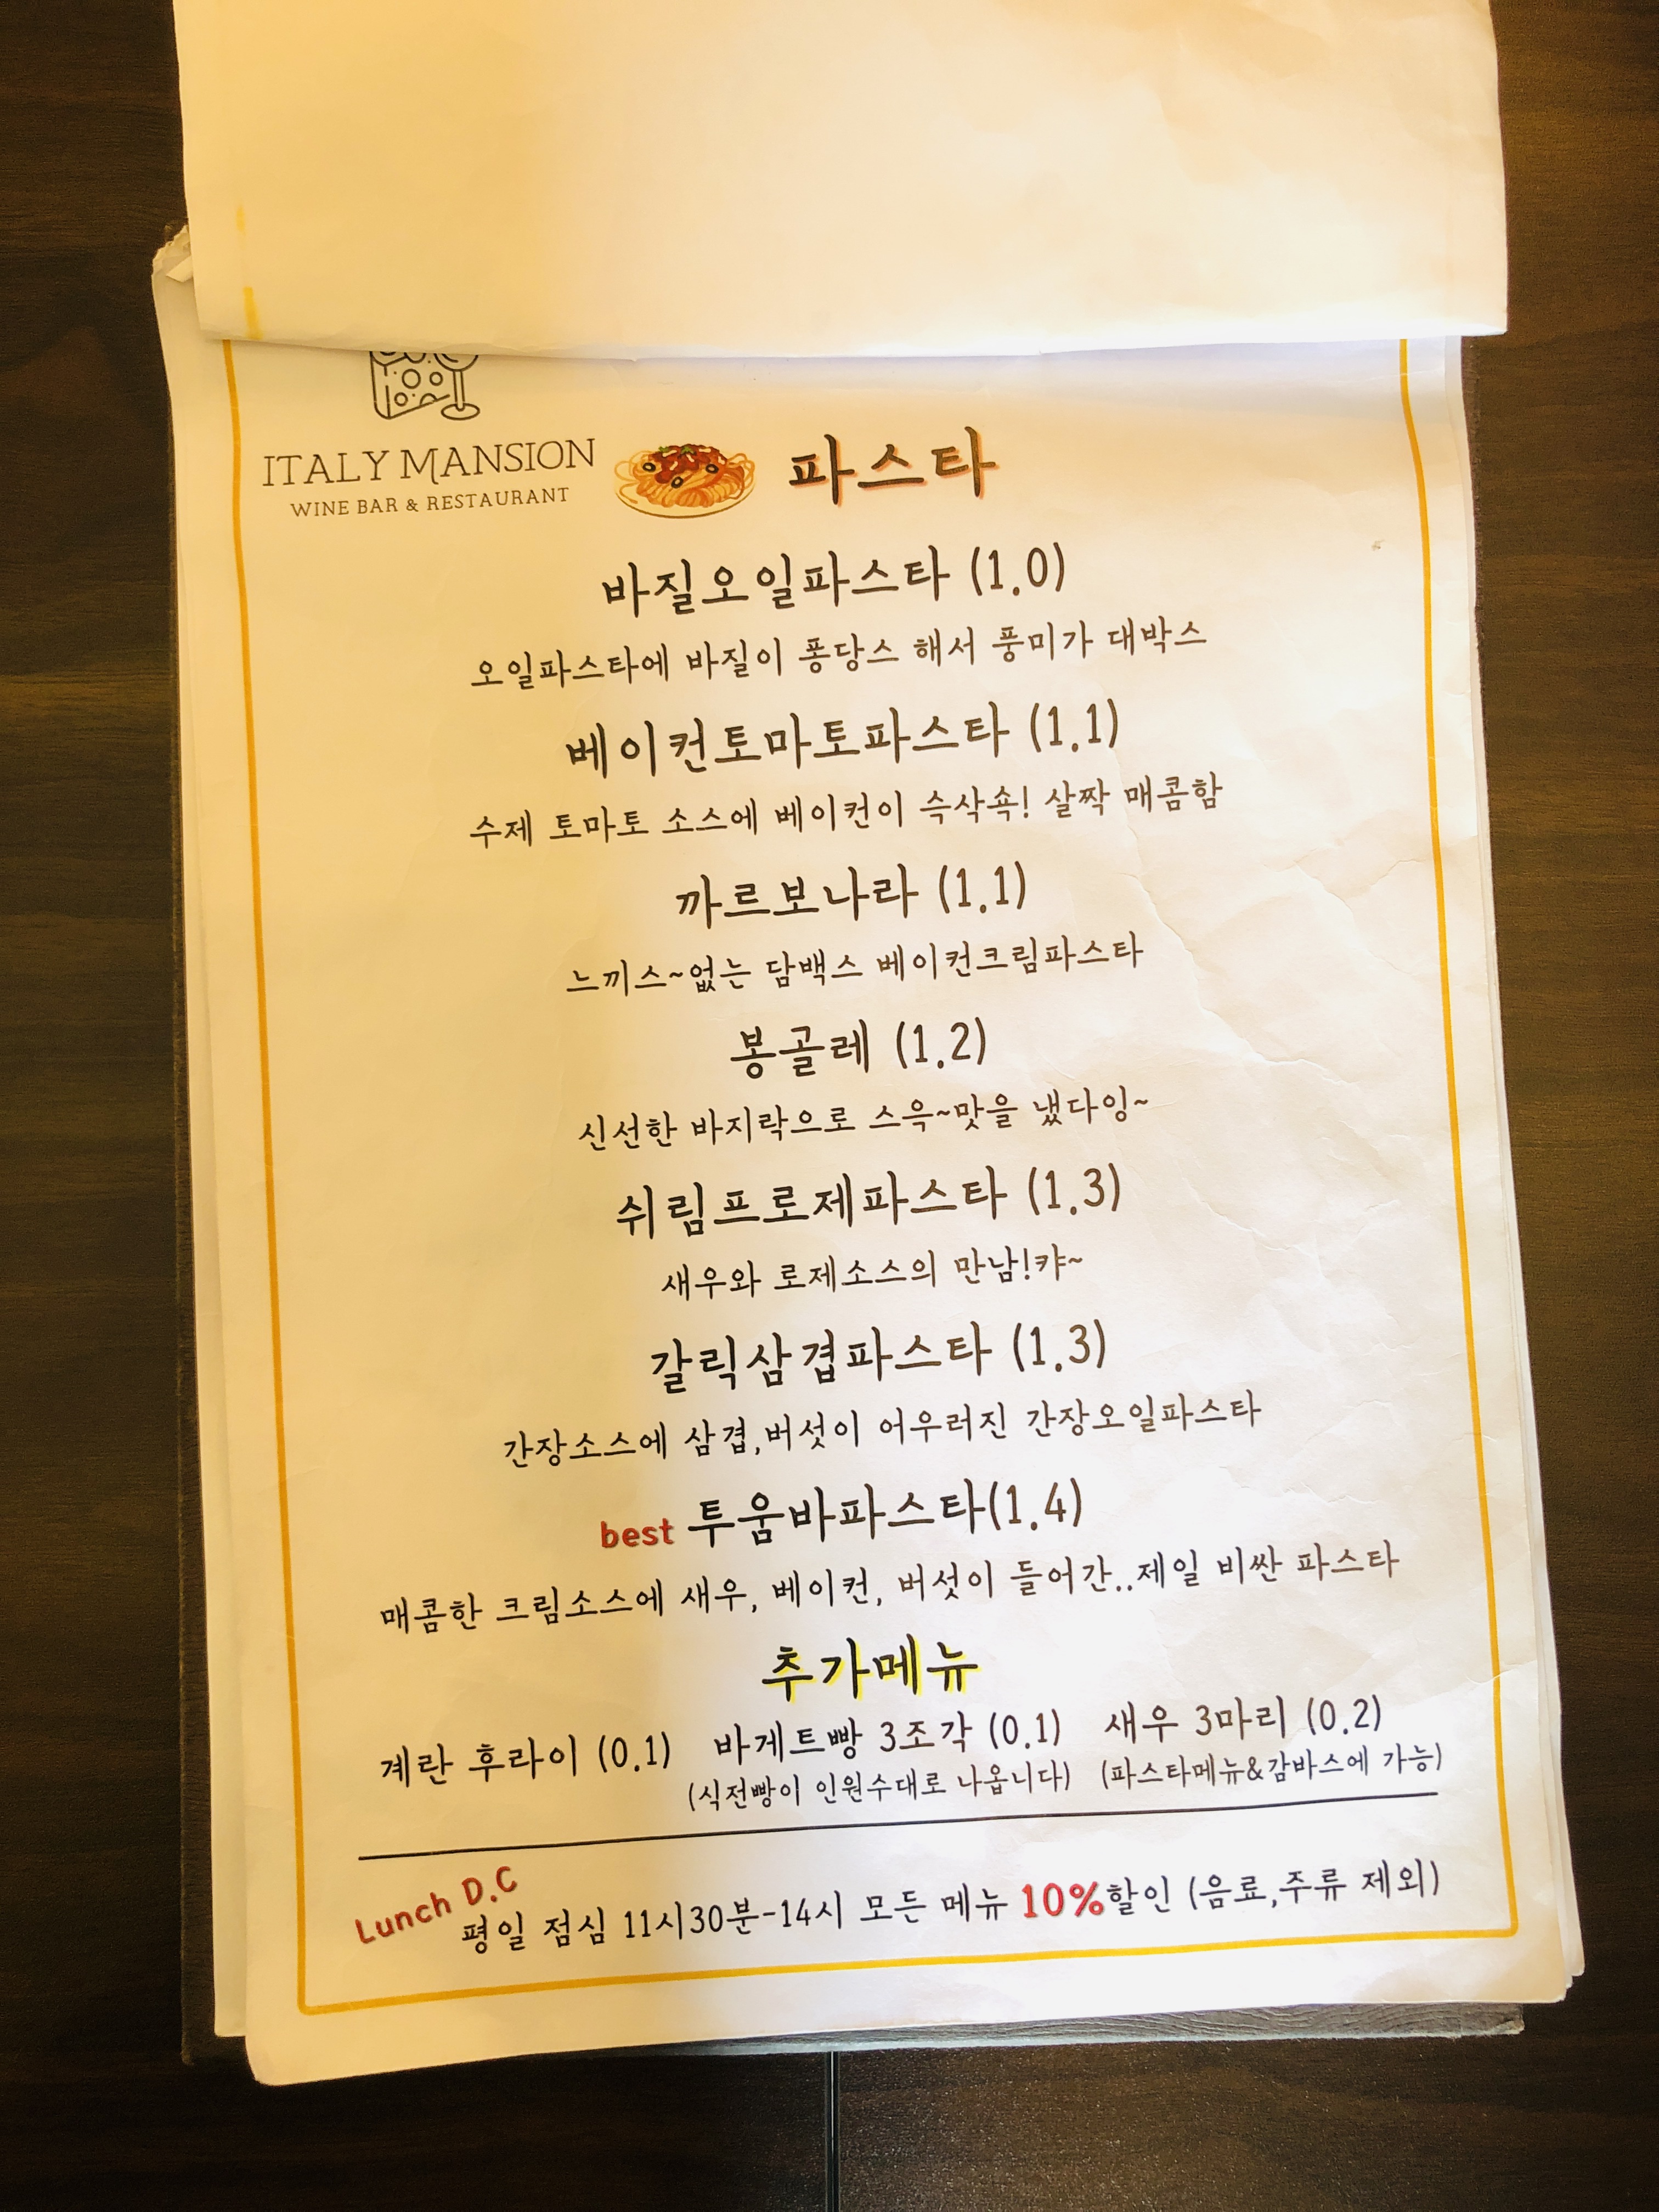 ITALY MANSION
WINE BAR & RESTAURANT
파스타
바질오일파스타 (1.0)
오일파스타에 바질이 퐁당스 해서 풍미가 대박스
베이컨토마토파스타 (1.1)
수제 토마토 소스에 베이컨이 슥삭쇽! 살짝 매콤함
까르보나라 (1.1)
느끼스~없는 담백스 베이컨크림파스타
봉골레 (1.2)
신선한 바지락으로 스윽~맛을 냈다잉~
쉬림프로제파스타 (1.3)
새우와 로제소스의 만남!캬~
갈릭삼겹파스타 (1.3)
간장소스에 삼겹,버섯이 어우러진 간장오일파스타
best 투움바파스타(1.4)
매콤한 크림소스에 새우, 베이컨, 버섯이 들어간..제일 비싼 파스타
추가메뉴
계란 후라이 (0.1) 바게트빵 3조각 (0.1) 새우 3마리 (0.2)
(식전빵이 인원수대로 나옵니다) (파스타메뉴&감바스에 가능)
Lunch D.C
평일 점심 11시30분-14시 모든 메뉴 10%할인 (음료,주류 제외)